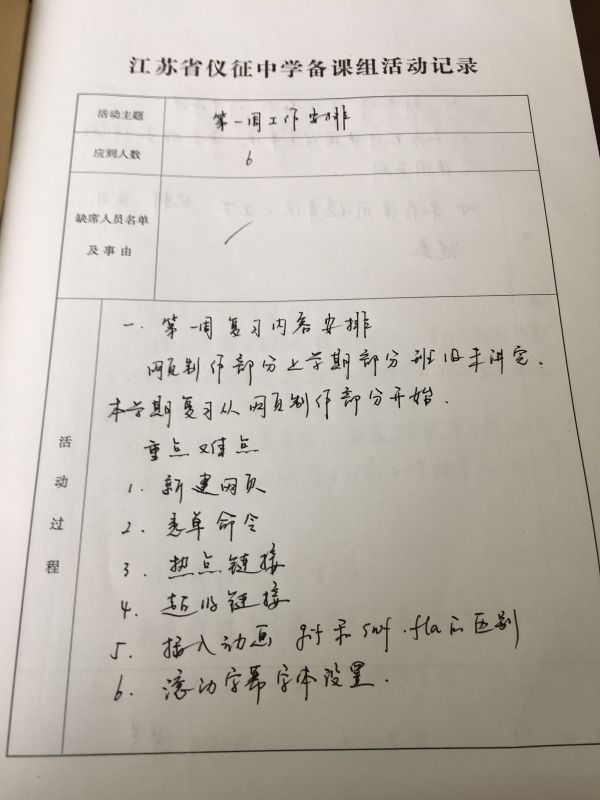 江苏省仪征中学备课组活动记录
活动主题 第一周工作安排
应到人数 6
缺席人员名单
及事由
一.第一周复习内容安排
网页制作部分上学期部分班旧未讲完.
本学期复习从网页制作部分开始.
重点难点
活动过程
1.新建网页
2.表单命令
3.热点链接
4.超级链接
5.插入动画 gif和swf.fla的区别
6.滚动字幕字体设置.